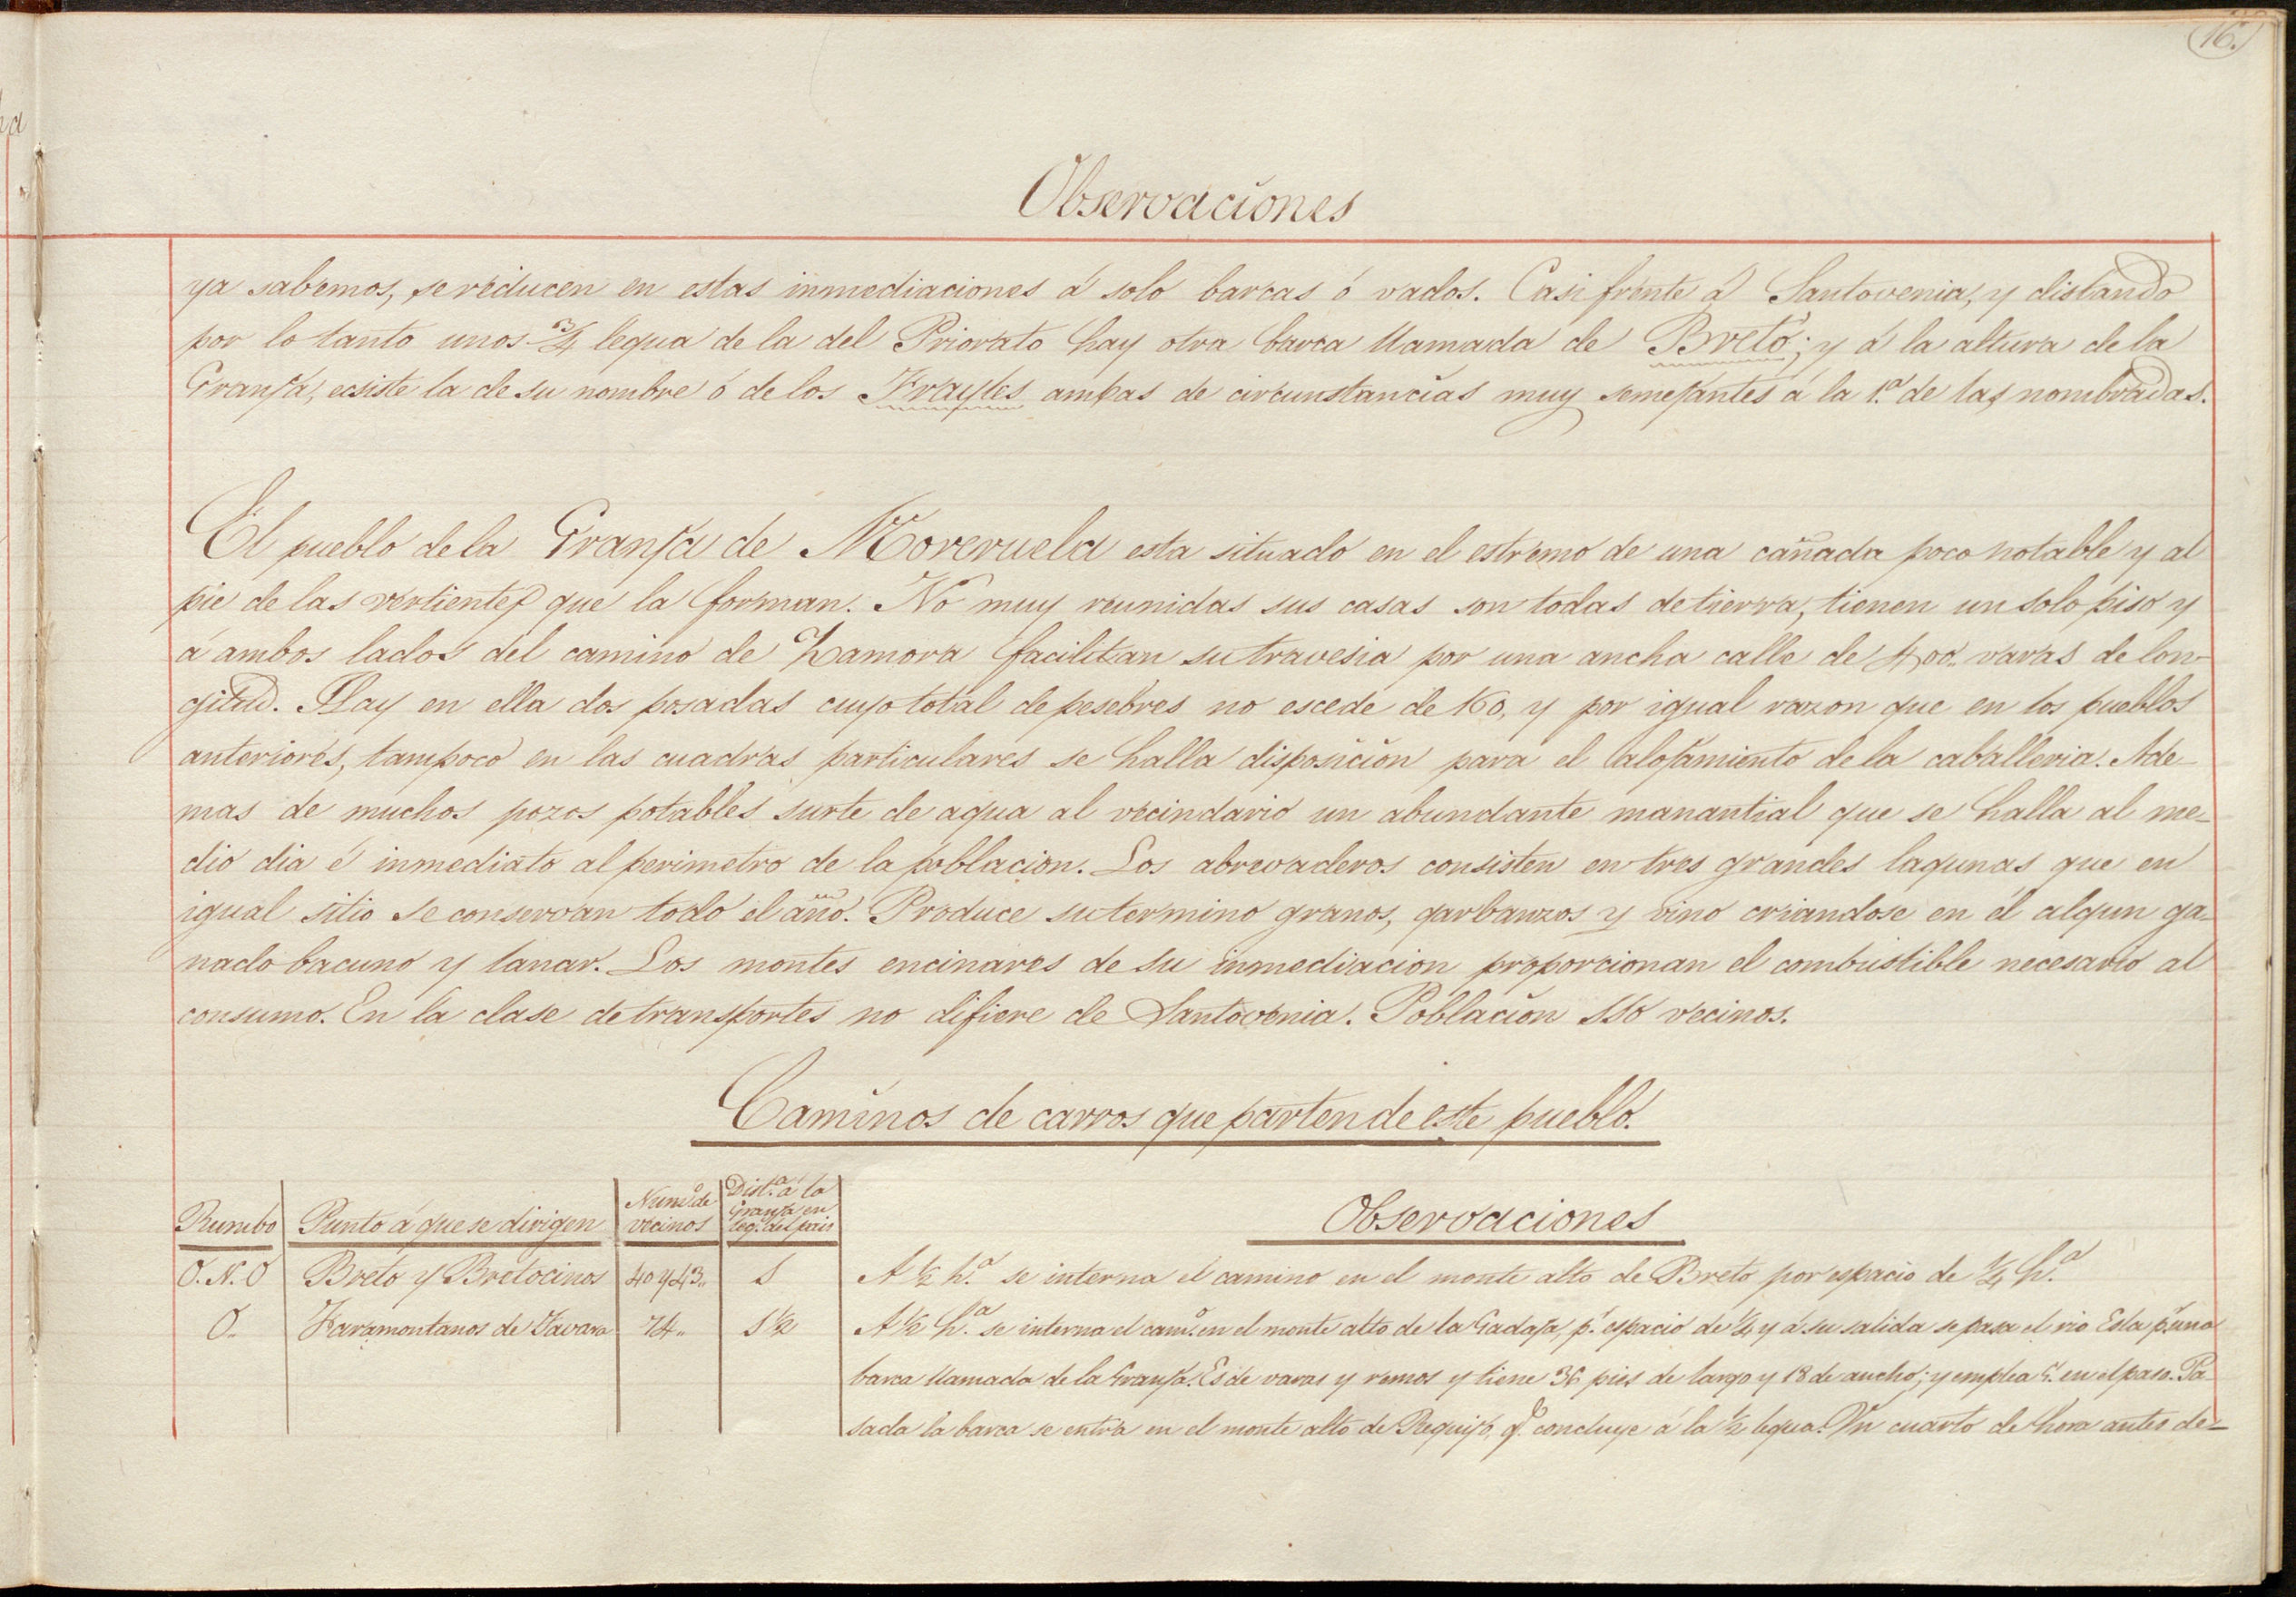 16.
Observaciones
ya sabemos, se reducen en estas inmediaciones á solo barcas ó vados. Casi frente á Santovenia, y distando
por lo tanto unos 3/4 legua de la del Priorato hay otra barca llamada de Breto; y á la altura de la
Granja, ecsiste la de su nombre ó de los Frayles ambas de circunstancias muy semejantes á la 1.ª de las nombradas.
El pueblo de la Granja de Moreruela esta situado en el estremo de una cañada poco notable y al
pie de las vertientes que la forman. No muy reunidas sus casas son todas de tierra, tienen un solo piso y
á ambos lados del camino de Zamora facilitan su travesia por una ancha calle de 400.. varas de lon-
gitud. Hay en ella dos posadas cuyo total de pesebres no escede de 160, y por igual razon que en los pueblos
anteriores, tampoco en las cuadras particulares se halla disposicion para el alojamiento de la caballeria. Ade-
mas de muchos pozos potables surte de agua al vecindario un abundante manantial que se halla al me-
dio dia é inmediato al perimetro de la poblacion. Los abrevaderos consisten en tres grandes lagunas que en
igual sitio se conservan todo el año. Produce su termino granos, garbanzos y vino criandose en él algun ga-
nado bacuno y lanar. Los montes encinares de su inmediacion proporcionan el combustible necesario al
consumo. En la clase de transportes no difiere de Santovenia. Poblacion 116 vecinos.
Caminos de carros que parten de este pueblo.
Rumbo | Punto á que se dirigen | Num.º de vecinos | Dist.ª á la Granja en leg.s del pais | Observaciones
O. N. O | Breto y Bretocinos | 40 y 43.. | 1 | A 1/2 h.ª se interna el camino en el monte alto de Breto por espacio de 1/4 h.ª
O.. | Faramontanos de Tavara | 74.. | 1 1/2 | A 1/2 h.ª se interna el cam.º en el monte alto de la Gadaja, p.r espacio de 1/4 y á su salida se pasa el rio Esla p.r una
barca llamada de la Granja. Es de varas y remos y tiene 36 pies de largo y 18 de ancho; y emplea 5' en el paso. Pa-
sada la barca se entra en el monte alto de Requijo, q.e concluye á la 1/2 legua. Un cuarto de hora antes de-